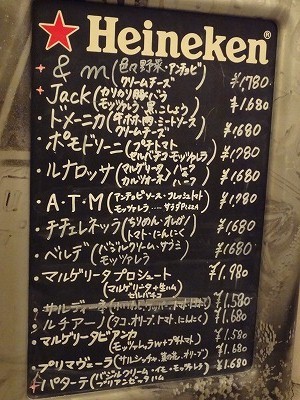 Heineken®
& m (色々野菜・アンチョビ ¥1,780
クリームチーズ
Jack (カリカリ豚バラ ¥1,680
モッツァレラ、黒こしょう
・ドメーニカ (牛ホホ肉・ミートソース ¥1,680
クリームチーズ
・ポモドリーニ (プチトマト ¥1,780
セルバチコ・モッツァレラ
・ルナロッサ (マルゲリータ ハーフ ¥1,680
カルツォーネ ハーフ
・A・T・M (アンチョビソース・フレッシュトマト ¥1,980
モッツァレラ
・チチェネッラ (ちりめん・オレガノ ¥1,680
トマト・にんにく
・ベルデ (バジルクリーム・サラミ ¥1,680
モッツァレラ
・マルゲリータプロシュート ¥1,980
(マルゲリータ+生ハム
セルバチコ
¥1,580
・ルチアーノ (タコ、オリーブ、トマト、にんにく) ¥1,680
・マルゲリータビアンカ ¥1,580
モッツァレラ+プチトマト
・プリマヴェーラ (サルシッチャ、菜の花、オリーブ) ¥1,680
・パターテ (バジルクリーム・イモ・モッツァレラ ¥1,680